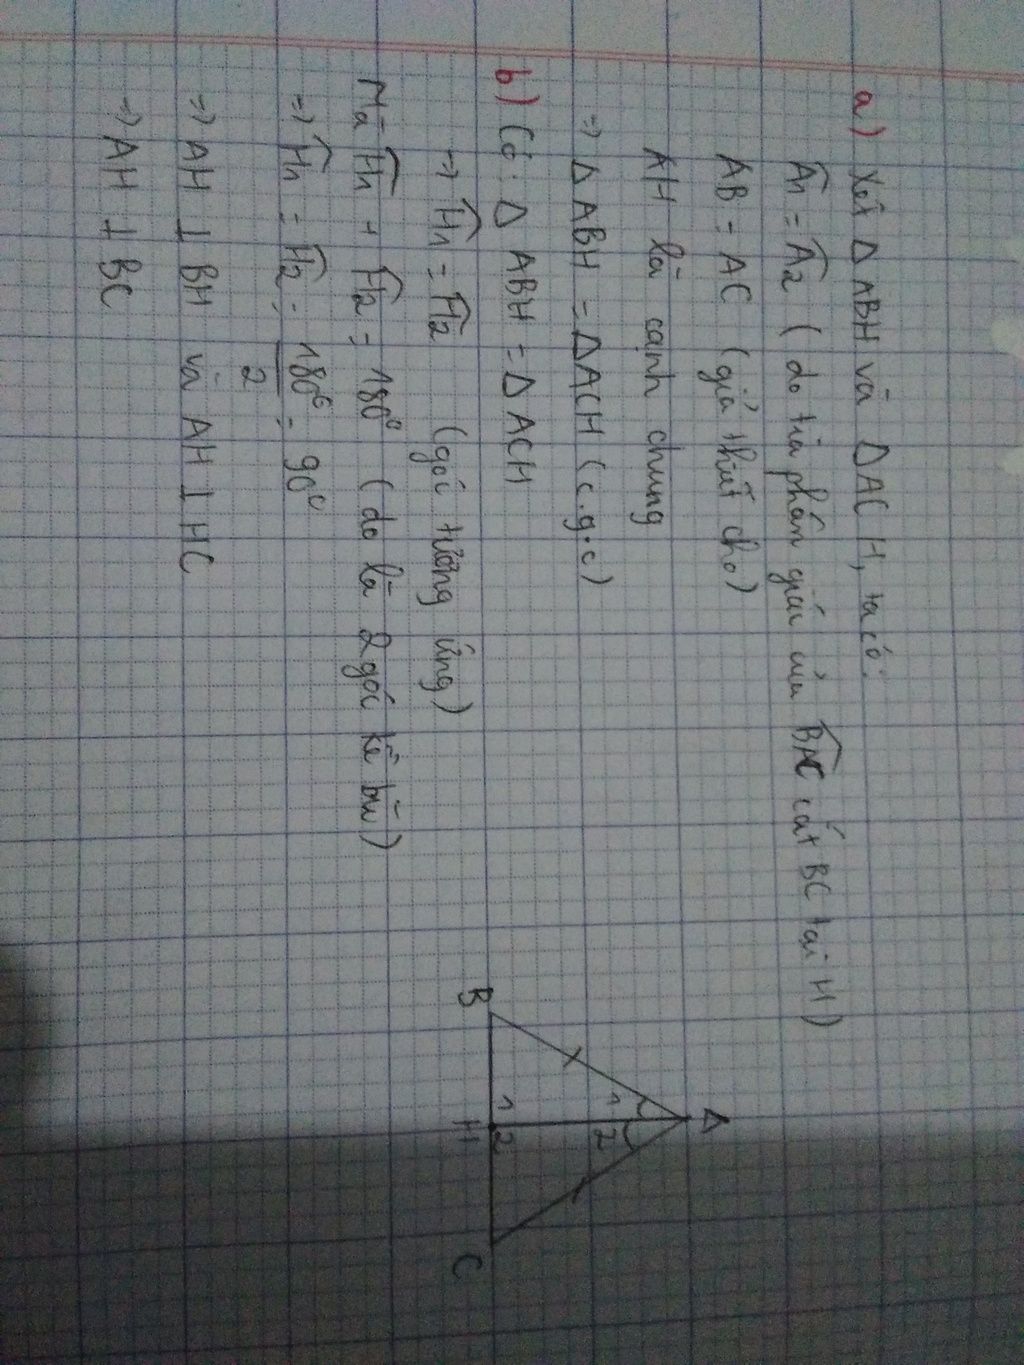 a) Xét Δ ABH và Δ ACH, ta có:
Â1 = Â2 ( do tia phân giác của BAC cắt BC tại H )
AB = AC (giả thiết cho)
AH là cạnh chung
=> Δ ABH = Δ ACH (c.g.c)
b) Có: Δ ABH = Δ ACH
=> Ĥ1 = Ĥ2 (góc tương ứng)
Mà Ĥ1 + Ĥ2 = 180° (do là 2 góc kề bù)
=> Ĥ1 = Ĥ2 = 180°/2 = 90°
=> AH ⊥ BH và AH ⊥ HC
=> AH ⊥ BC
A
1 2
1 2
B H C